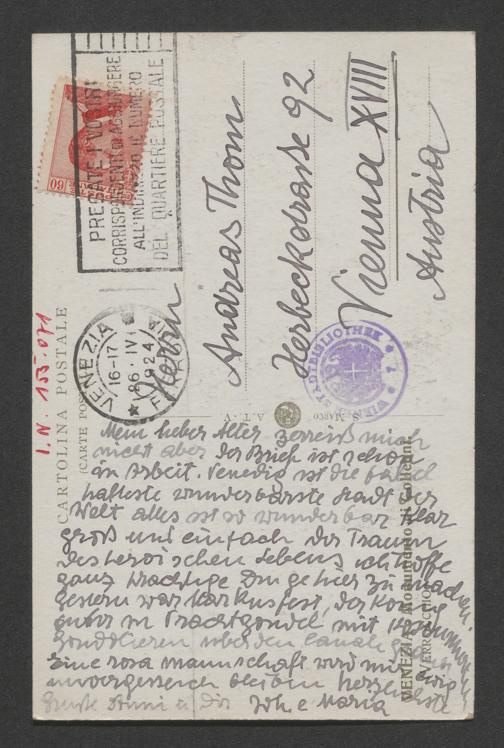 60
PREGATE I VOSTRI
CORRISPONDENTI DI AGGIUNGERE
ALL'INDIRIZZO IL NUMERO
DEL QUARTIERE POSTALE
VENEZIA
16-17
26·IV
1924
FERROVIA
Herrn
Andreas Thom
Herbeckstrasse 92
Vienna XVIII
Austria
WIENER STADTBIBLIOTHEK
I.N. 155.071
CARTOLINA POSTALE
(CARTE POSTALE)
S. MARCO
A. T. V.
VENEZIA - Monumento di Colleoni.
VERROCCHIO
Mein lieber Alter zerreiß mich
nicht aber der Brief ist schon
in Arbeit. Venedig ist die fabel
hafteste wunderbarste Stadt der
Welt alles ist so wunderbar klar
groß und einfach der Traum
des heroischen Lebens ich hoffe
ganz mächtige Dinge hier zu machen
gestern war Markusfest, der König
fuhr in Prachtgondel mit
Gondolieren über den Canale
Eine rosa Mannschaft wird mir ewig
unvergessen bleiben herzlichste
Grüße Anni u Dir Joh. e Maria